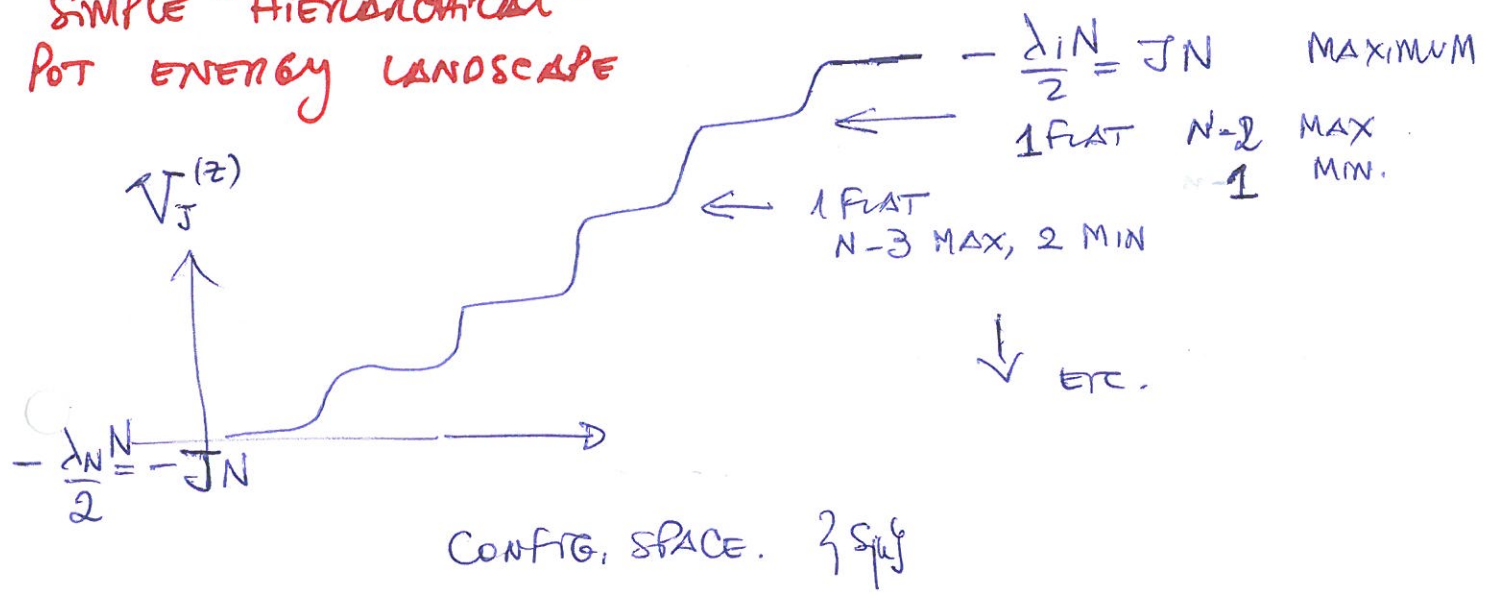 SIMPLE HIERARCHICAL
POT ENERGY LANDSCAPE
- λiN/2 = JN MAXIMUM
1 FLAT N-2 MAX
1 MIN.
V_J^(z)
1 FLAT
N-3 MAX, 2 MIN
↓ ETC.
- λ_N N/2 = -JN
CONFIG. SPACE. {Sμ}